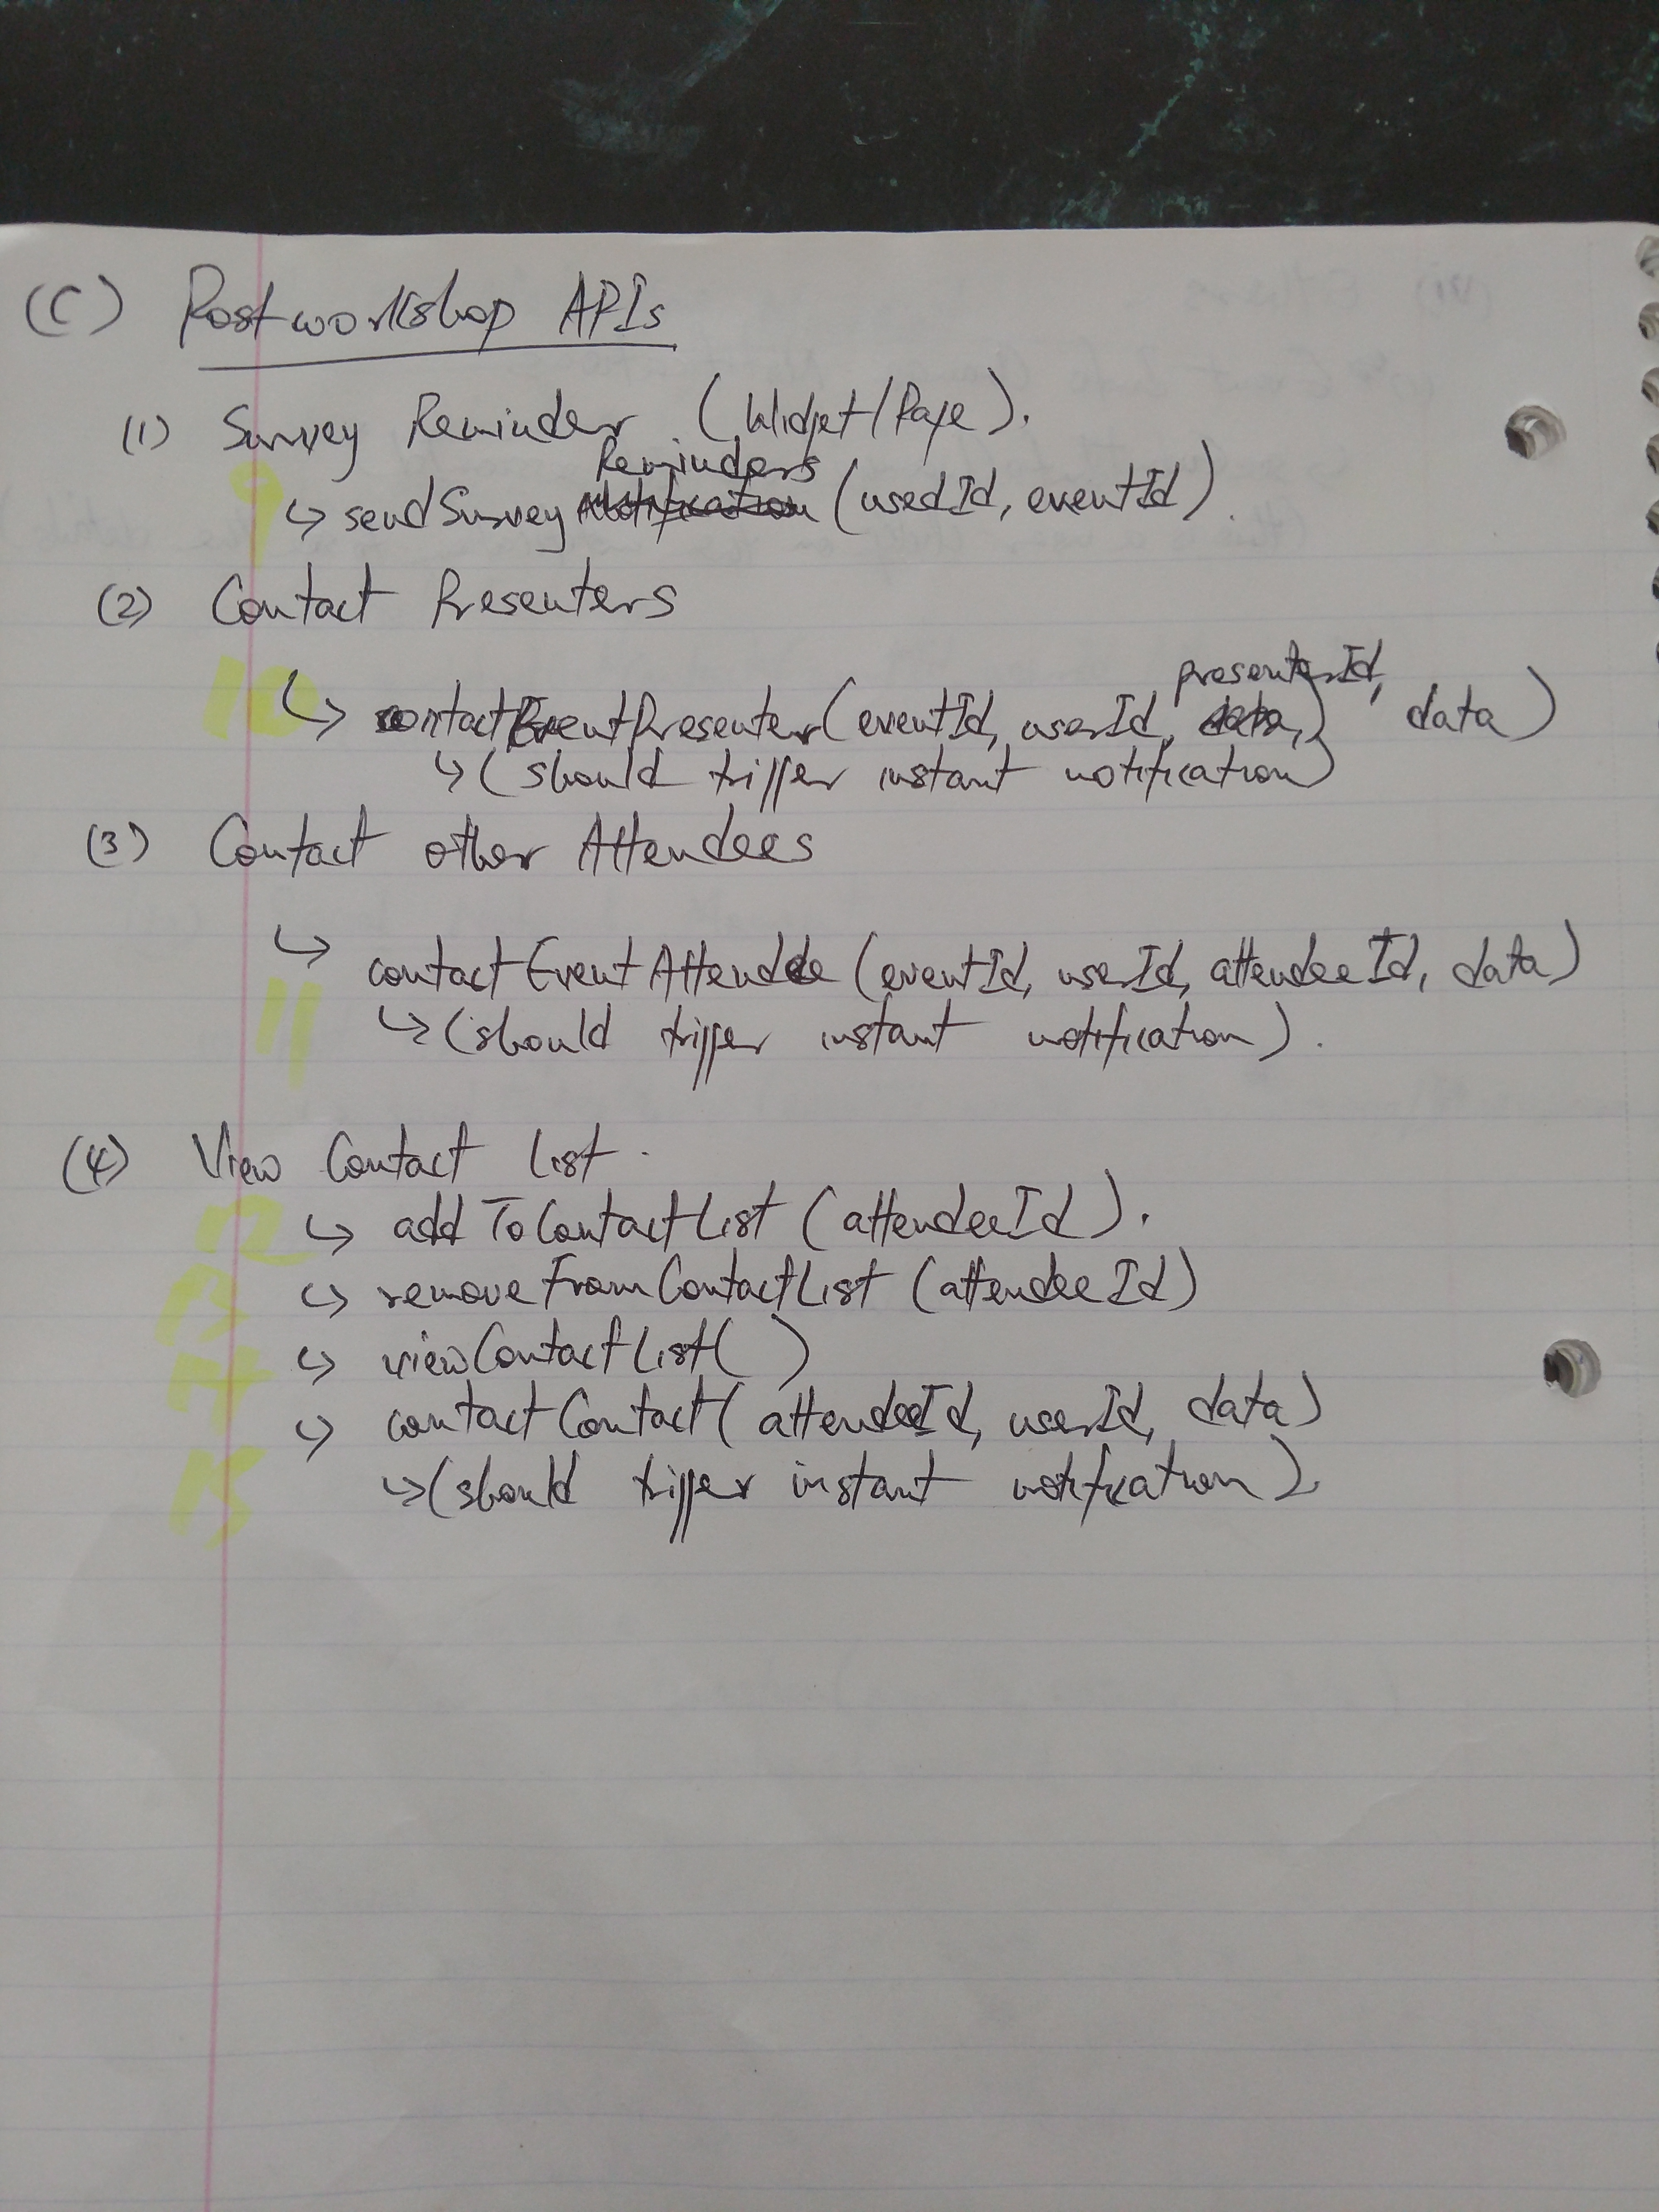 (C) Postworkshop APIs
(1) Survey Reminder (Widget/Page).
Reminders
9 ↳ sendSurvey Notification (usedId, eventId).
(2) Contact Presenters
presenterId,
10 ↳ contactEventPresenter(eventId, userId, data,) data)
↳ (should trigger instant notification)
(3) Contact other Attendees
↳ contactEventAttendee (eventId, userId, attendeeId, data)
11 ↳ (should trigger instant notification).
(4) View Contact List.
12 ↳ addToContactList (attendeeId).
13 ↳ removeFromContactList (attendeeId)
14 ↳ viewContactList()
↳ contactContact(attendeeId, userId, data)
15 ↳ (should trigger instant notification).